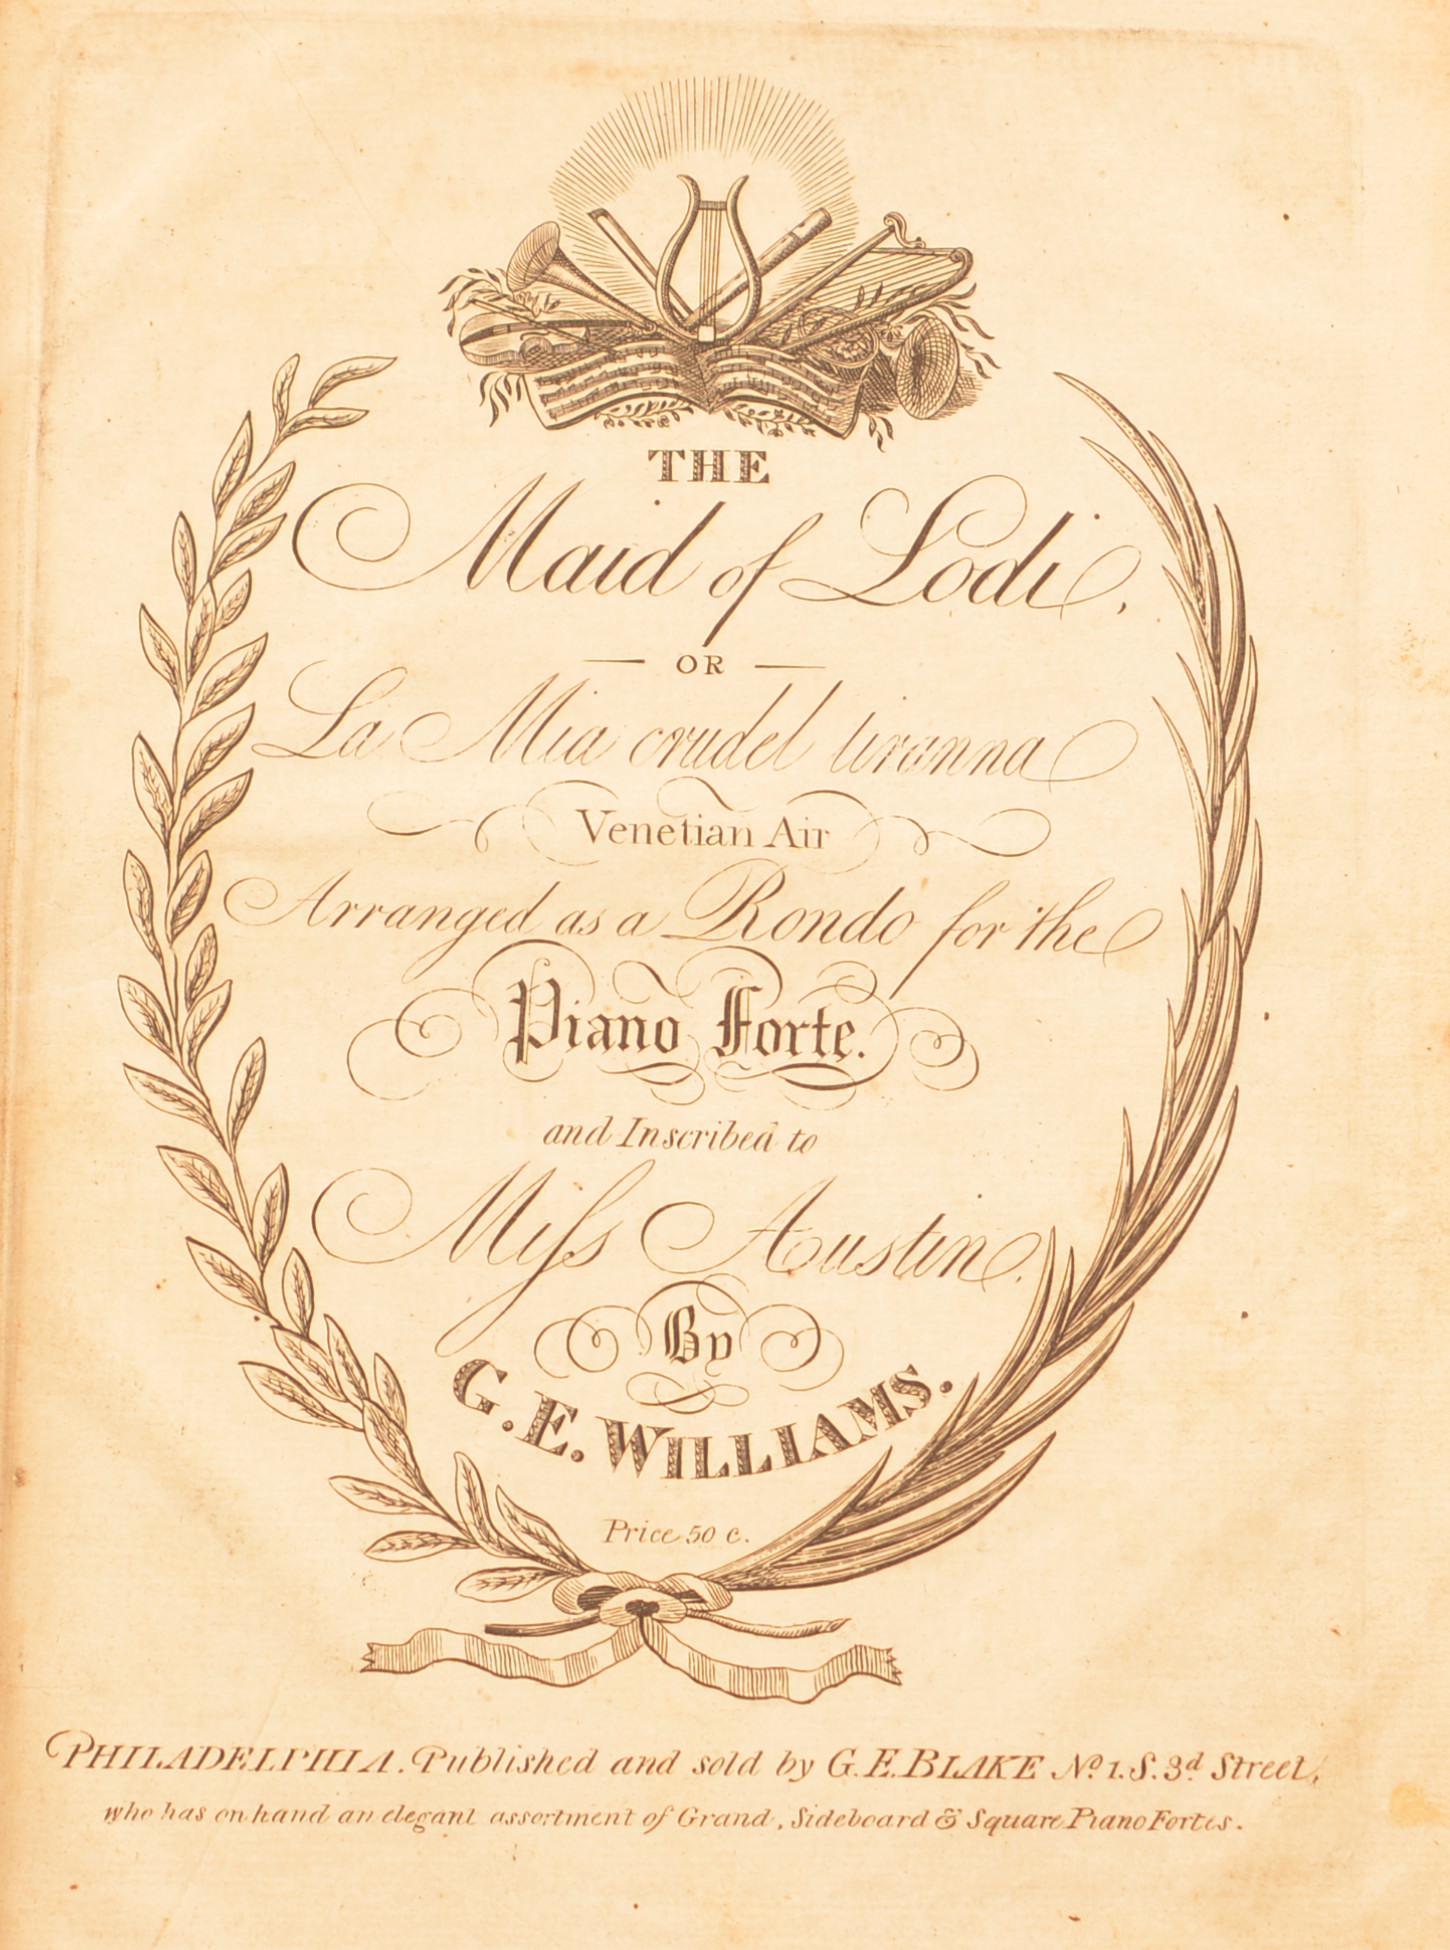 THE
Maid of Lodi,
OR
La Mia crudel tiranna
Venetian Air
Arranged as a Rondo for the
Piano Forte.
and Inscribed to
Miſs Austin.
By
G. E. WILLIAMS.
Price 50 c.
PHILADELPHIA. Published and sold by G. E. BLAKE No. 1. S. 3d Street,
who has on hand an elegant assortment of Grand, Sideboard & Square Piano Fortes.